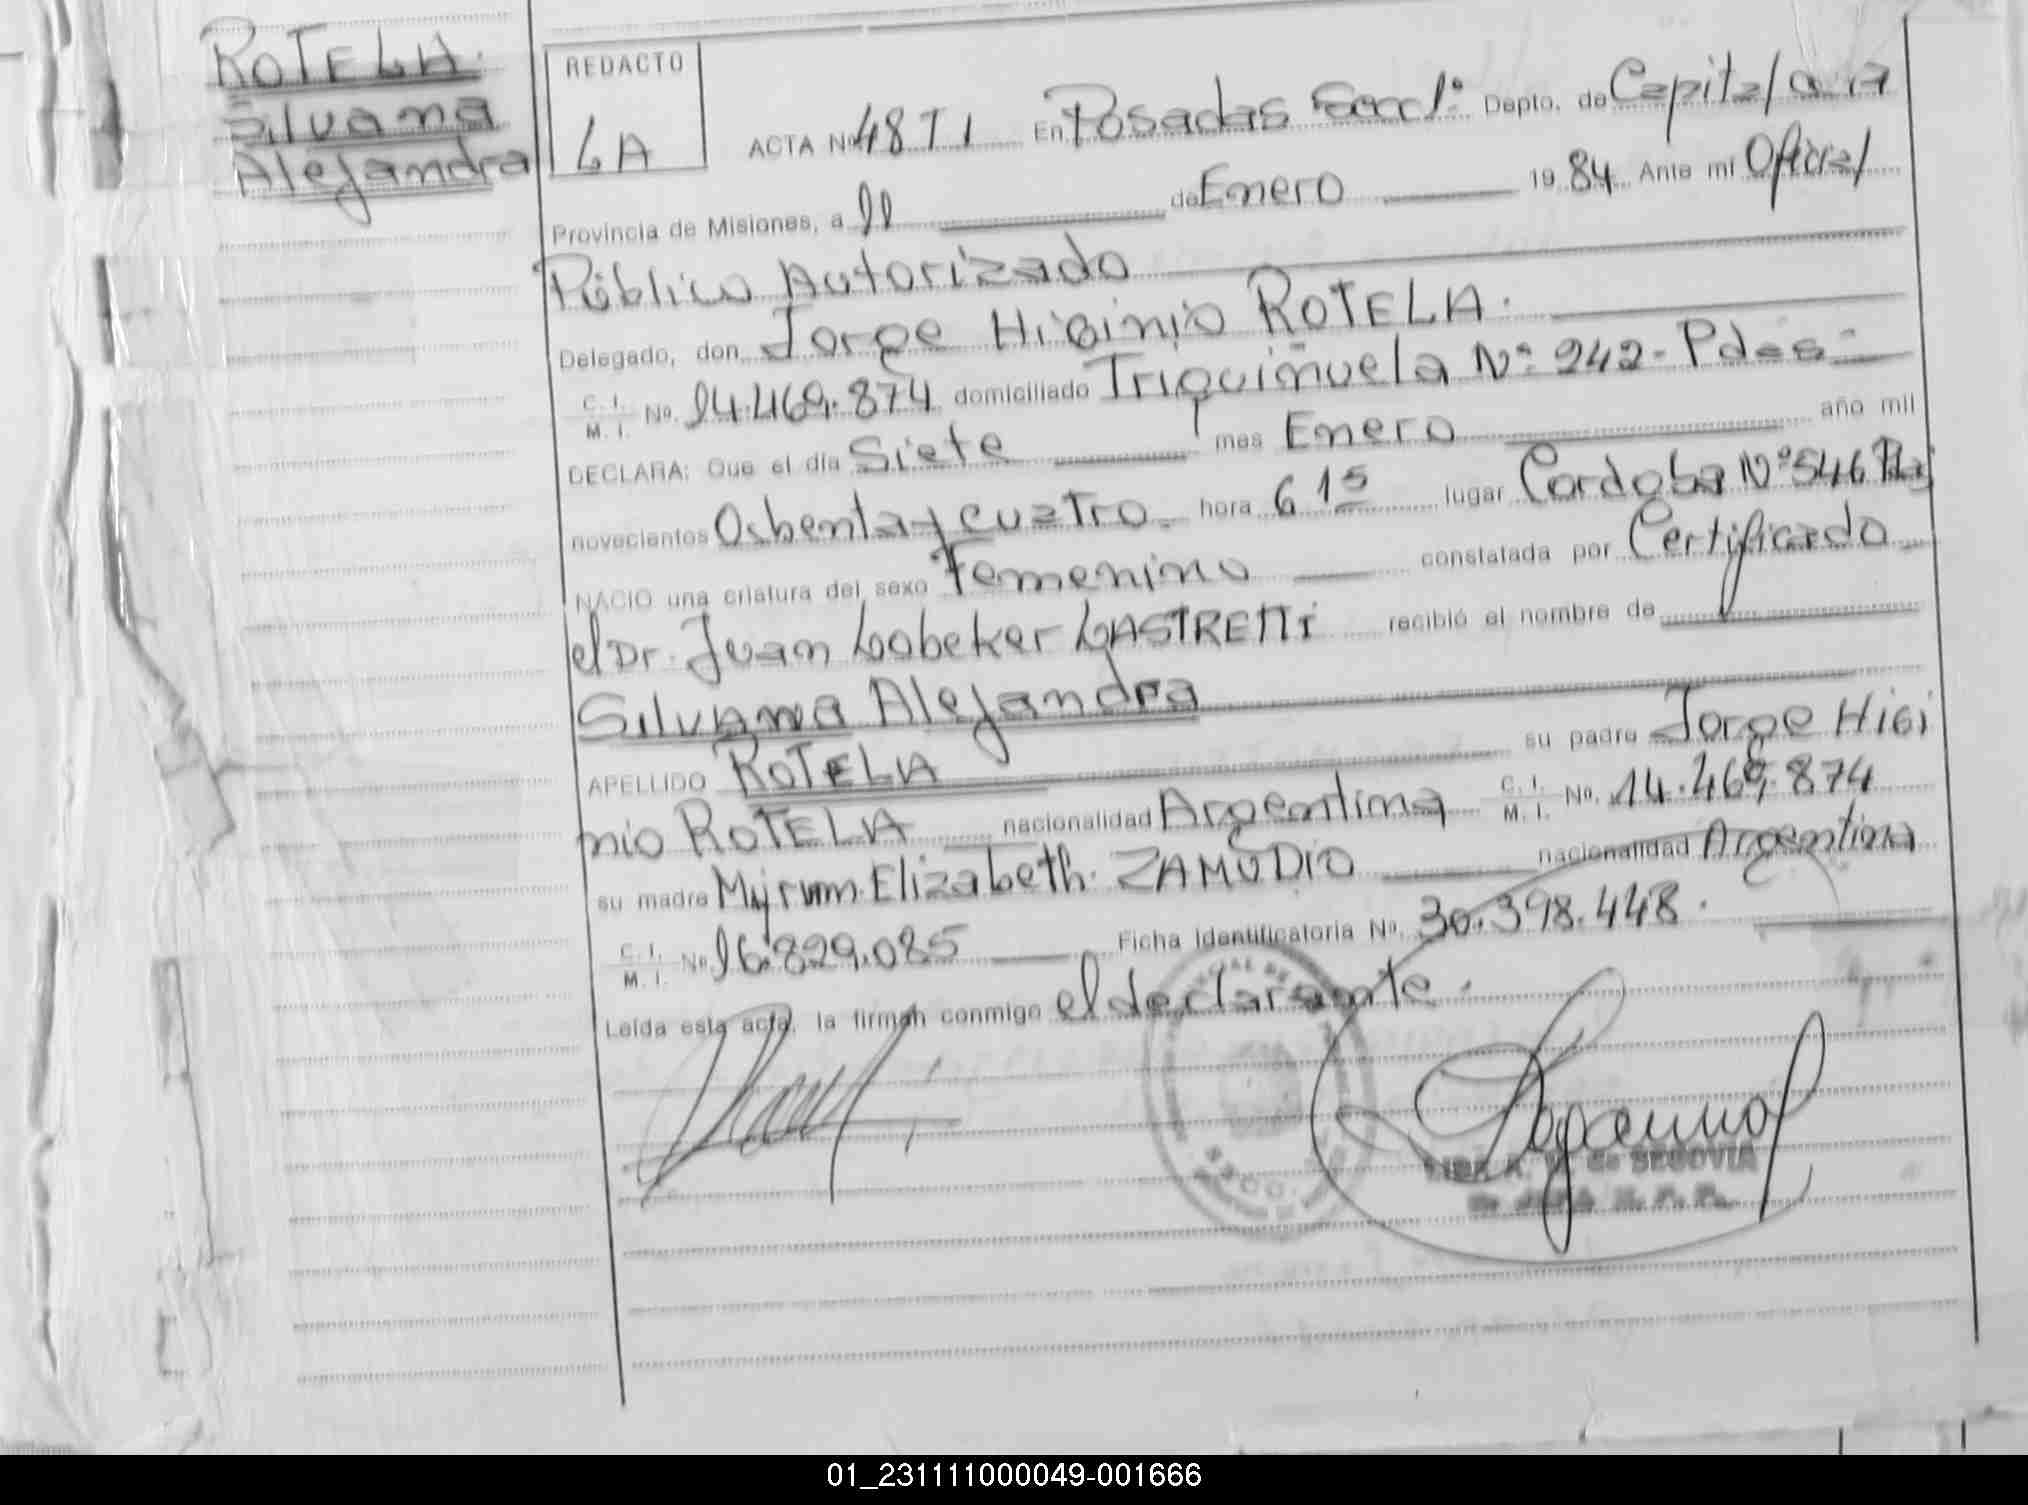 ROTELA.
Silvana
Alejandra
REDACTO
LA
ACTA Nº 48 T I En Posadas Secc 1ª Depto. de Capital
Provincia de Misiones, a 11 de Enero 1984 Ante mí Oficial
Público Autorizado
Delegado, don Jorge Higinio ROTELA.
C. I. M. I. No. 14.469.874 domiciliado Triquiñuela Nº 242 - Pdas -
DECLARA: Que el día Siete mes Enero año mil
novecientos Ochenta y cuatro. hora 6 15 lugar Cordoba Nº 546 Pdas
NACIO una criatura del sexo Femenino constatada por Certificado
el Dr. Juan Lobeker LASTRETTI recibió el nombre de
Silvana Alejandra
APELLIDO ROTELA su padre Jorge Higi
nio ROTELA nacionalidad Argentina C. I. M. I. No. 14.469.874
su madre Myriam Elizabeth ZAMUDIO nacionalidad Argentina
C. I. M. I. No 16.829.085 Ficha Identificatoria No. 30.398.448.
Leída esta acta, la firman conmigo el declarante.
de SEGOVIA
01_231111000049-001666